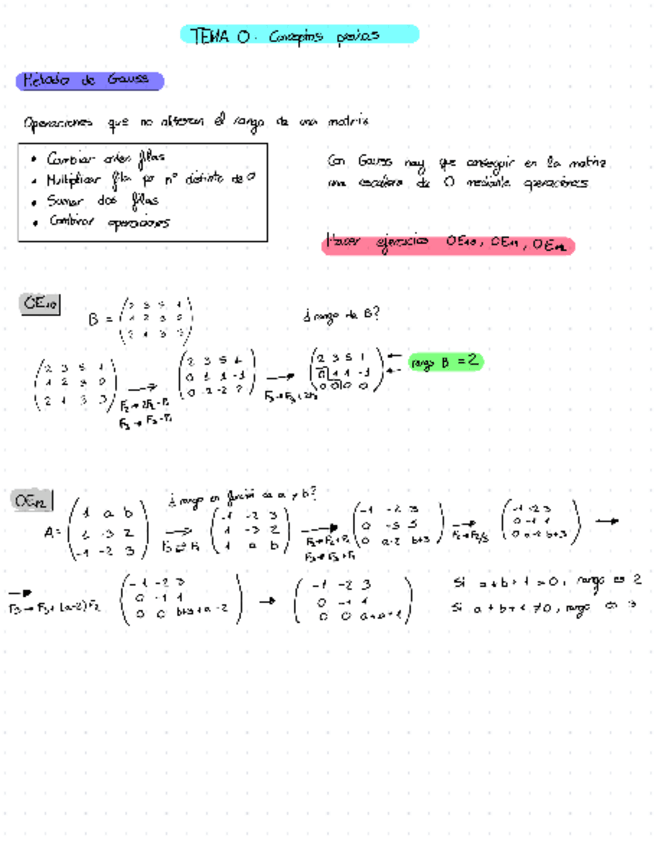 TEMA 0. Conceptos previos
Método de Gauss
Operaciones que no alteran el rango de una matriz
• Cambiar orden filas
• Multiplicar fila por nº distinto de 0
• Sumar dos filas
• Combinar operaciones
Con Gauss hay que conseguir en la matriz
una escalera de 0 mediante operaciones
Hacer ejercicios OE10, OE11, OE12
OE10
B =
¿rango de B?
2 3 5 1
1 2 3 0
2 1 3 3
F2→2F2-F1
F3→F3-F1
2 3 5 1
0 1 1 -1
0 -2 -2 2
F3→F3+2F2
2 3 5 1
0 1 1 -1
0 0 0 0
rango B = 2
OE12
¿rango en función de a y b?
A =
1 a b
1 -3 2
-1 -2 3
F3⇄F1
-1 -2 3
1 -3 2
1 a b
F2→F2+F1
F3→F3+F1
-1 -2 3
0 -5 5
0 a-2 b+3
F2→F2/5
-1 -2 3
0 -1 1
0 a-2 b+3
F3→F3+(a-2)F2
-1 -2 3
0 -1 1
0 0 b+3+a-2
-1 -2 3
0 -1 1
0 0
Si a+b+1=0, rango es 2
Si a+b+1≠0, rango es 3